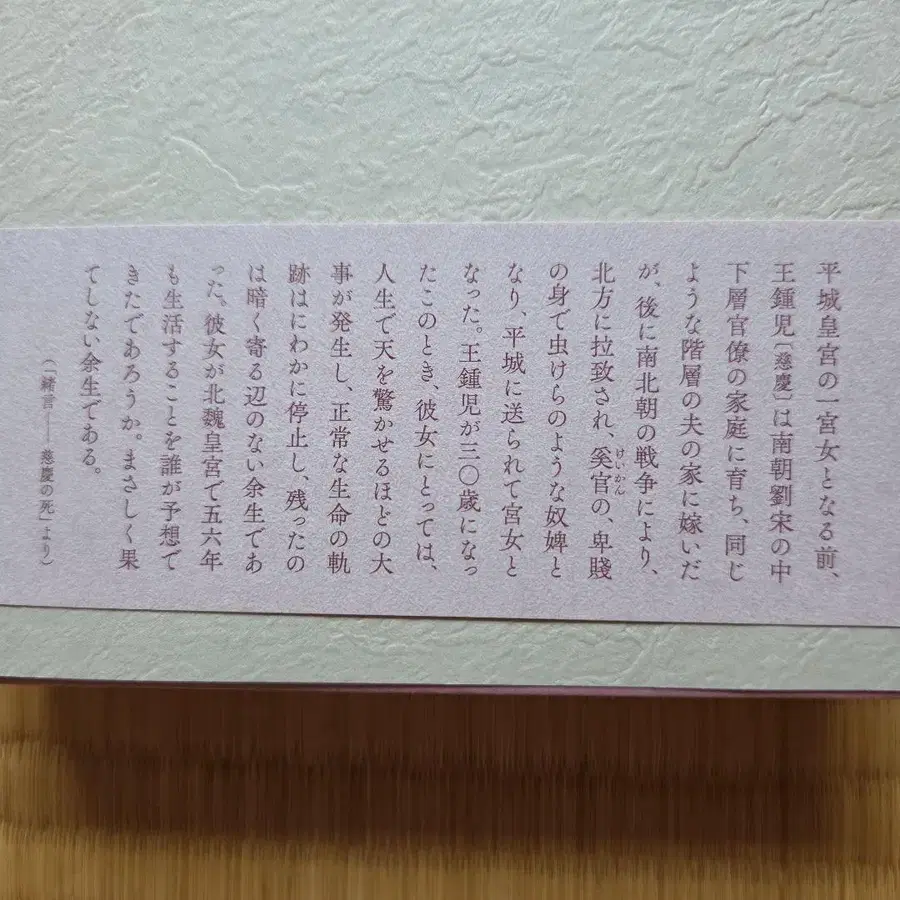 平城皇宮の一宮女となる前、
王鍾児〔慈慶〕は南朝劉宋の中
下層官僚の家庭に育ち、同じ
ような階層の夫の家に嫁いだ
が、後に南北朝の戦争により、
北方に拉致され、奚官の、卑賤
けいかん
の身で虫けらのような奴婢と
なり、平城に送られて宮女と
なった。王鍾児が三〇歳になっ
たこのとき、彼女にとっては、
人生で天を驚かせるほどの大
事が発生し、正常な生命の軌
跡はにわかに停止し、残ったの
は暗く寄る辺のない余生であ
った。彼女が北魏皇宮で五六年
も生活することを誰が予想で
きたであろうか。まさしく果
てしない余生である。
（「緒言――慈慶の死」より）